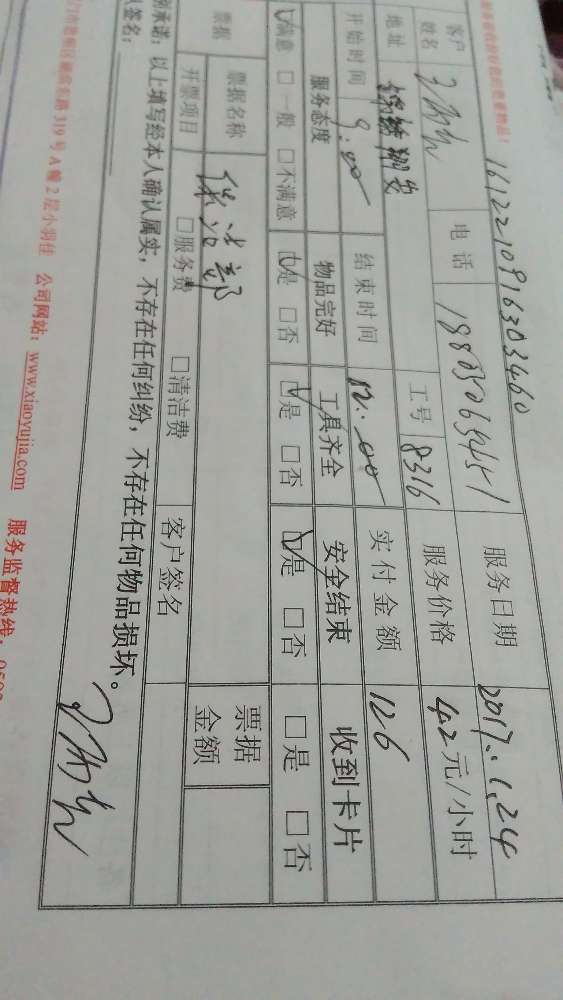 1612210916303460
客户姓名 电话 服务日期 2017.1.24
地址 锦绣翔安 工号 8316 服务价格 42元/小时
开始时间 9:00 结束时间 12:00 实付金额 126
服务态度 物品完好 工具齐全 安全结束 收到卡片
☑满意 □一般 □不满意 ☑是 □否 ☑是 □否 ☑是 □否 □是 □否
票据 票据名称 保洁部 票据金额
开票项目 □服务费 □清洁费 客户签名
承诺：以上填写经本人确认属实，不存在任何纠纷，不存在任何物品损坏。
签名：
319号A幢2层小羽佳 公司网站：www.xiaoyujia.com 服务监督热线：